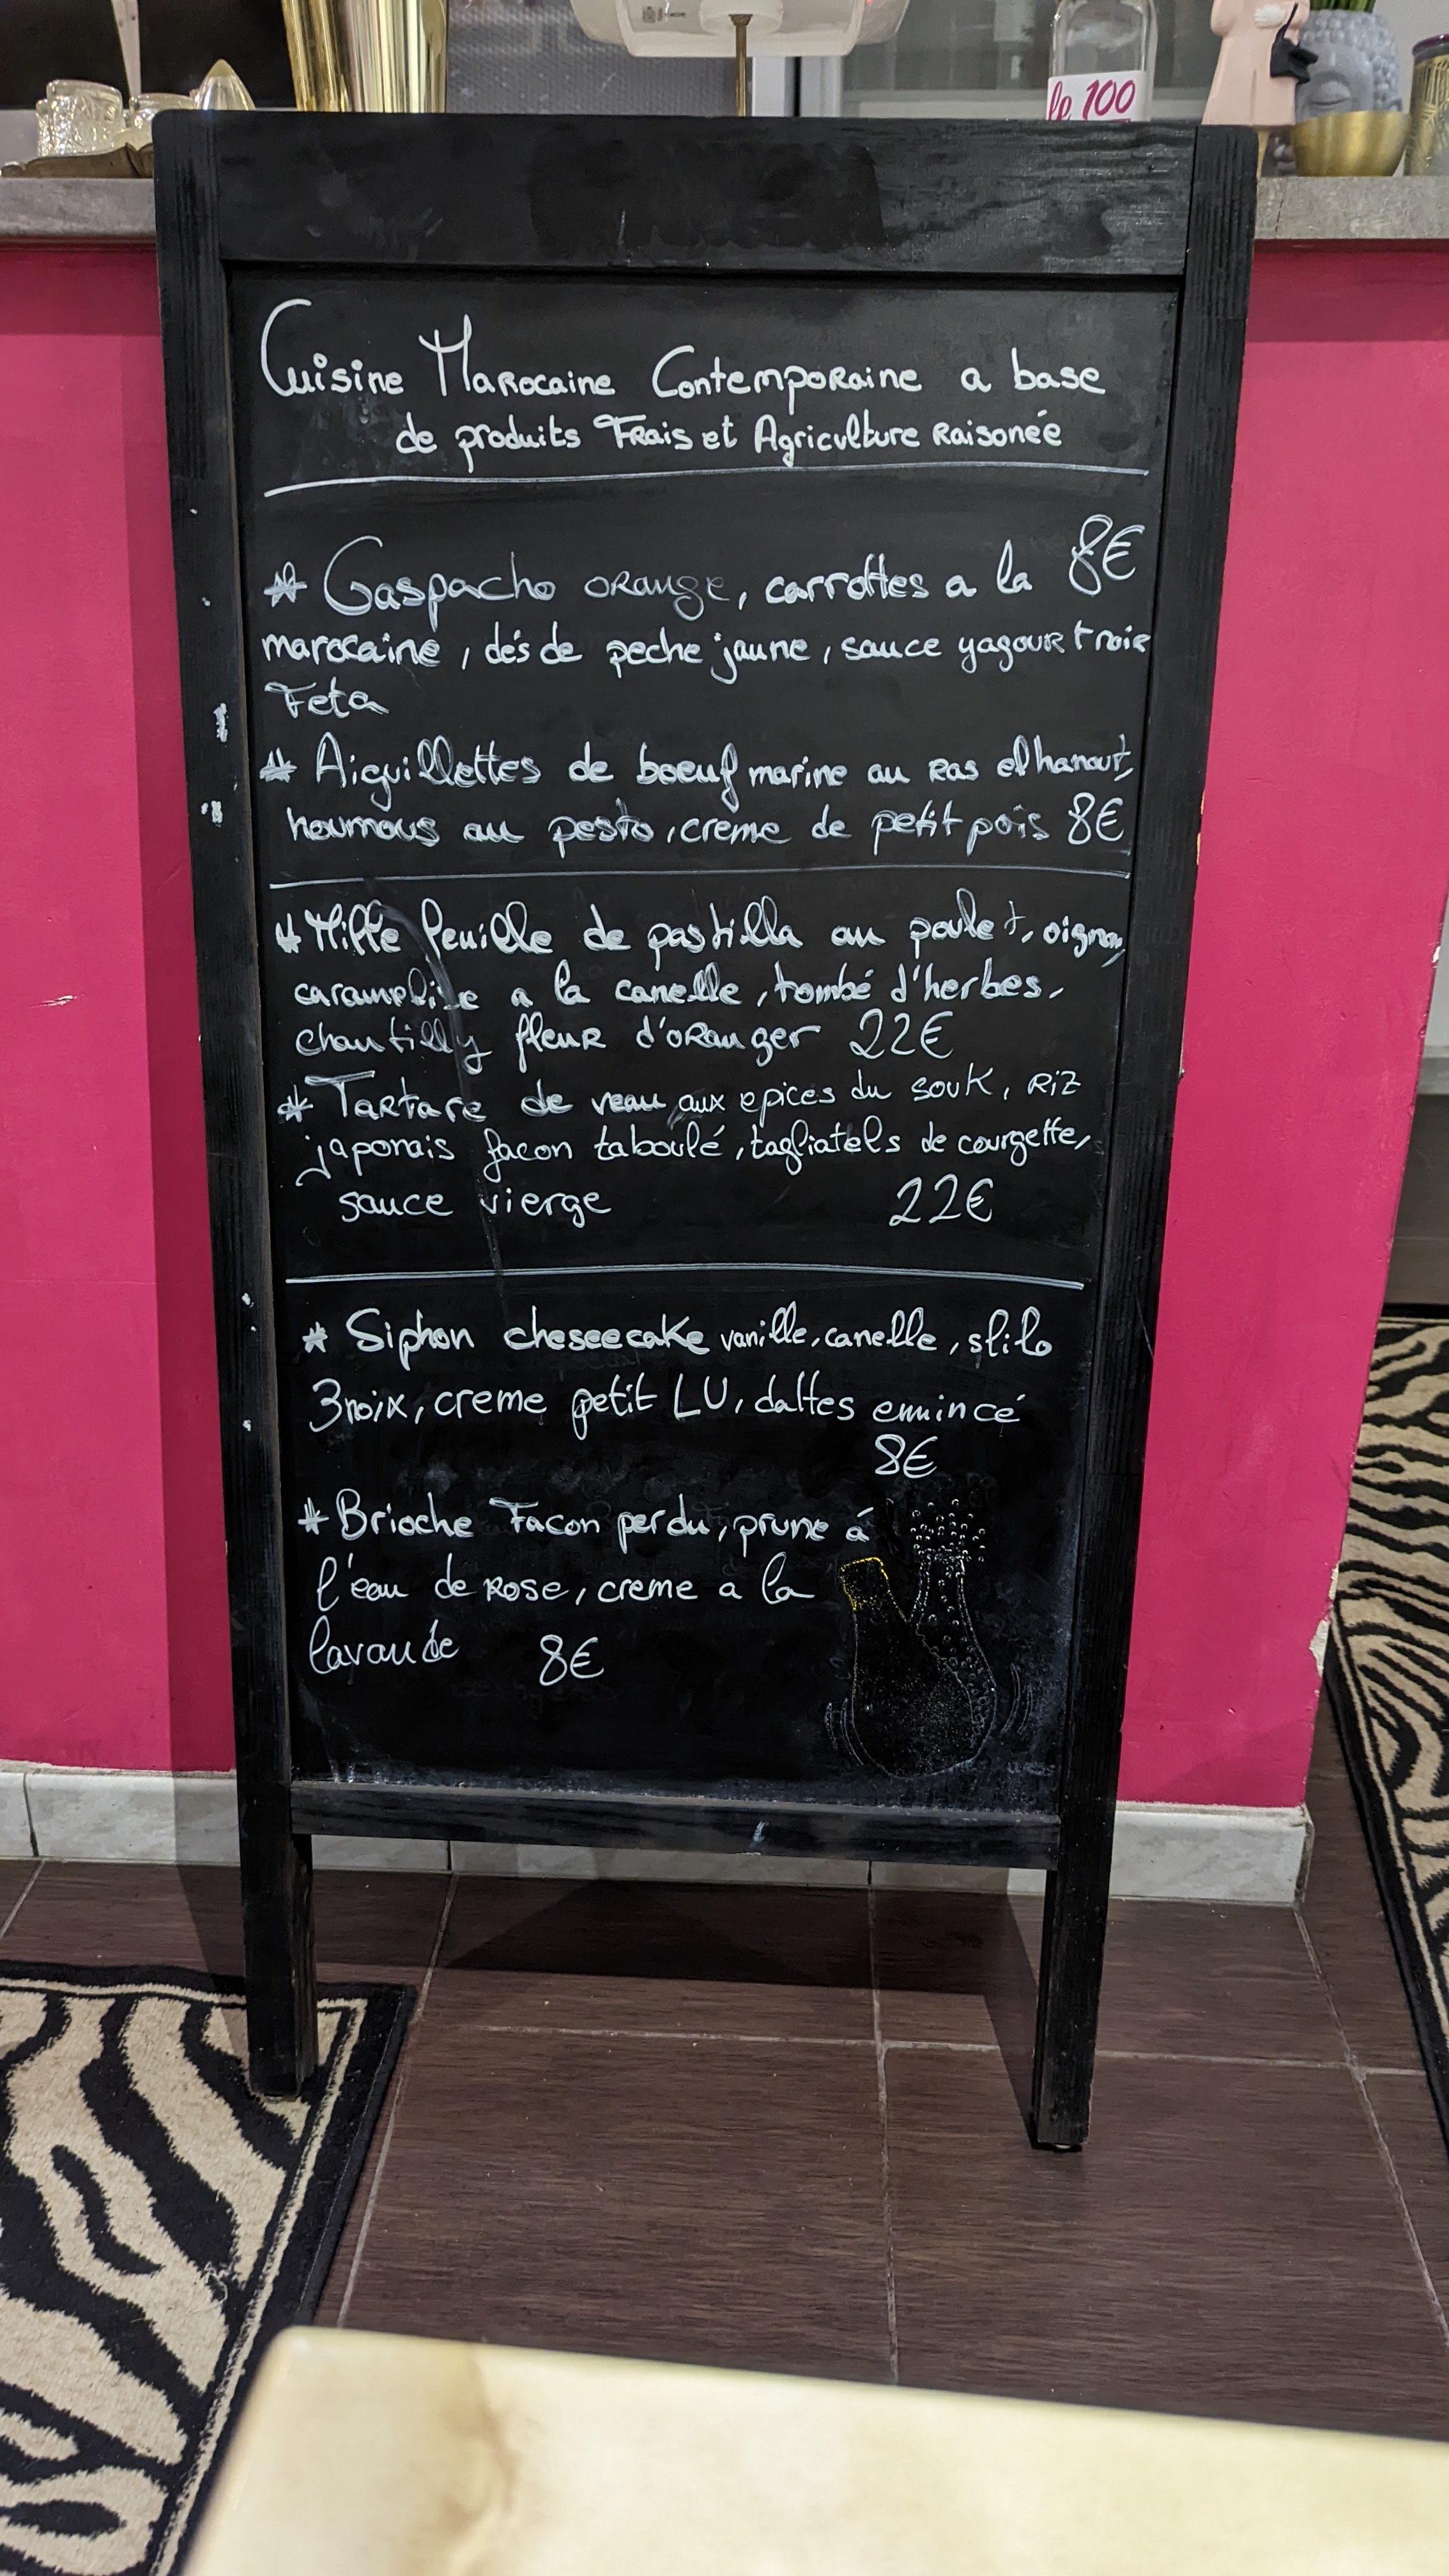 le 100
Cuisine Marocaine Contemporaine a base
de produits Frais et Agriculture Raisonée
* Gaspacho orange, carrottes a la 8€
marocaine, dés de peche jaune, sauce yagourt noix
Feta
* Aiguillettes de boeuf marine au Ras el hanout,
houmous au pesto, creme de petit pois 8€
* Mille feuille de pastilla au poulet, oignon,
caramelise a la canelle, tombé d'herbes,
chantilly fleur d'oranger 22€
* Tartare de veau aux epices du souk, Riz
japonais facon taboulé, tagliatels de courgette,
sauce vierge 22€
* Siphon cheseecake vanille, canelle, sfilo
3 noix, creme petit LU, dattes emincé
8€
* Brioche Facon perdu, prune á
l'eau de Rose, creme a la
lavande 8€